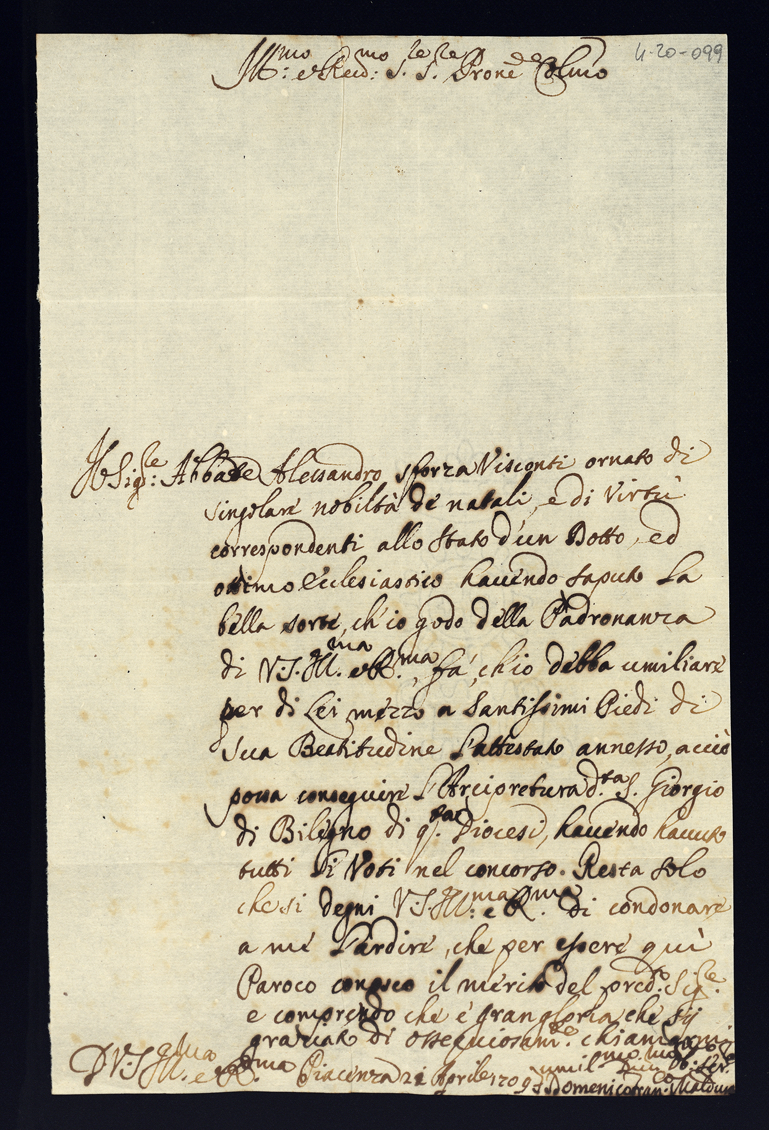 4-20-099
Ill:mo e Reud:mo S.re S.re Prone Colmo
Il Sig:re Abbate Alessandro Sforza Visconti ornato di
singolare nobiltà de natali, e di Virtù
correspondenti allo Stato d'un Dotto, ed
ottimo Ecclesiastico hauendo saputo la
bella sorte, ch'io godo della Padronanza
di V.S. Ill.ma e R.ma, fà, ch'io debba umiliare
per di Lei mezzo a Santissimi Piedi di
Sua Beatitudine l'attestato annesso, acciò
possa conseguire l'Arcipretura d.ta S. Giorgio
di Bilegno di q.ta Diocesi, hauendo hauuto
tutti li Voti nel concorso. Resta solo
che si degni V.S. Ill:ma e R.ma di condonare
a me l'ardire, che per essere quì
Paroco conosco il merito del pred.o Sig.re
e comprendo che è gran gloria che sij
graziato di ossequiosam.e chiamarmi
D V.S. Ill.ma e R.ma Piacenza 21 Aprile 1709
umil.mo Ob: Ser.
Domenico